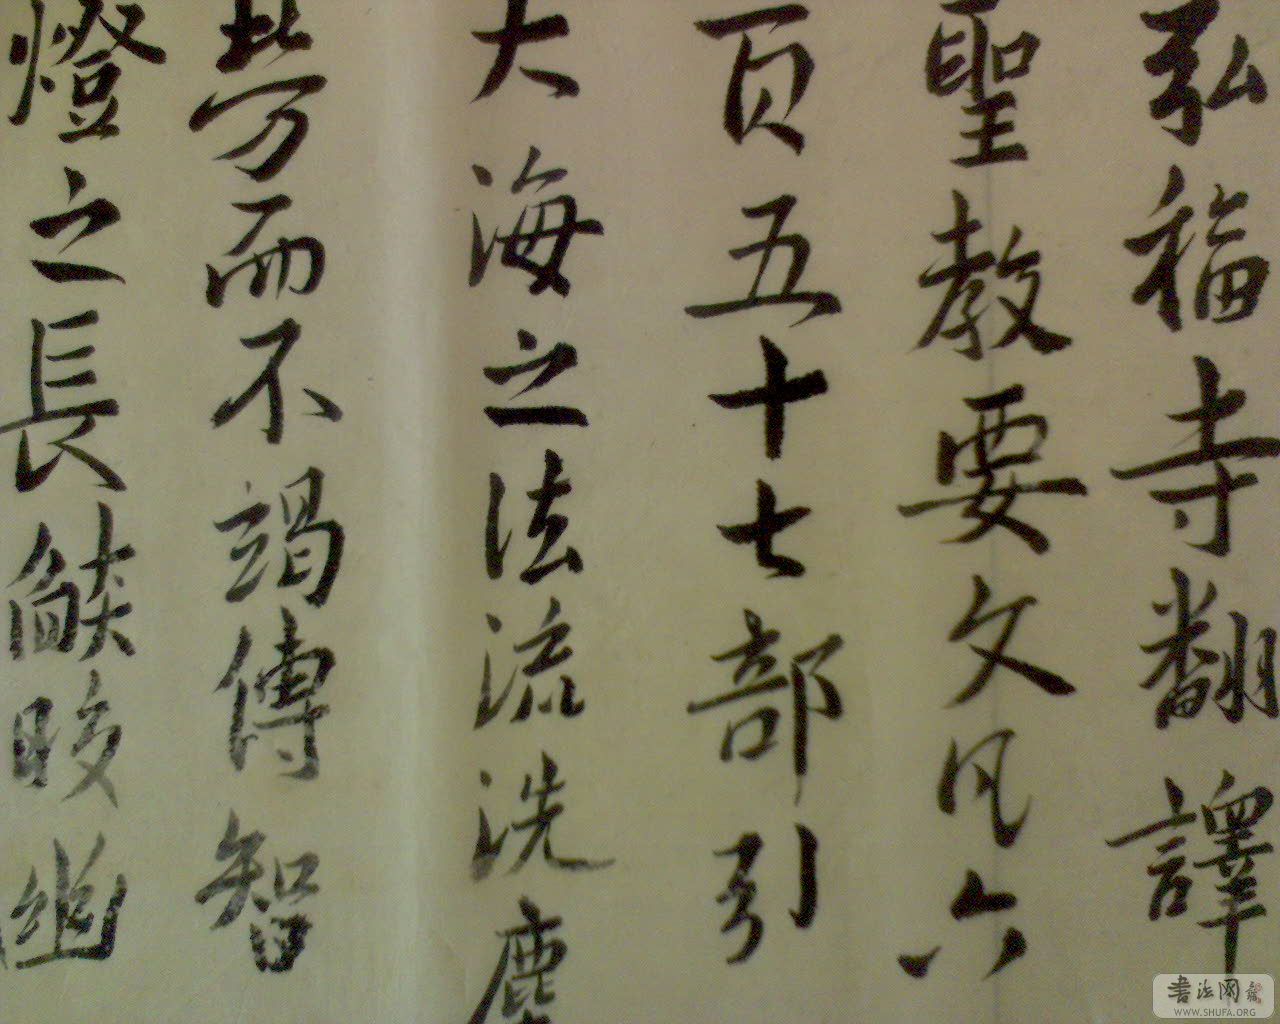 弘福寺翻譯
聖教要文凡六
百五十七部引
大海之法流洗塵
勞而不竭傳智
燈之長皎幽
書法网
WWW.SHUFA.ORG